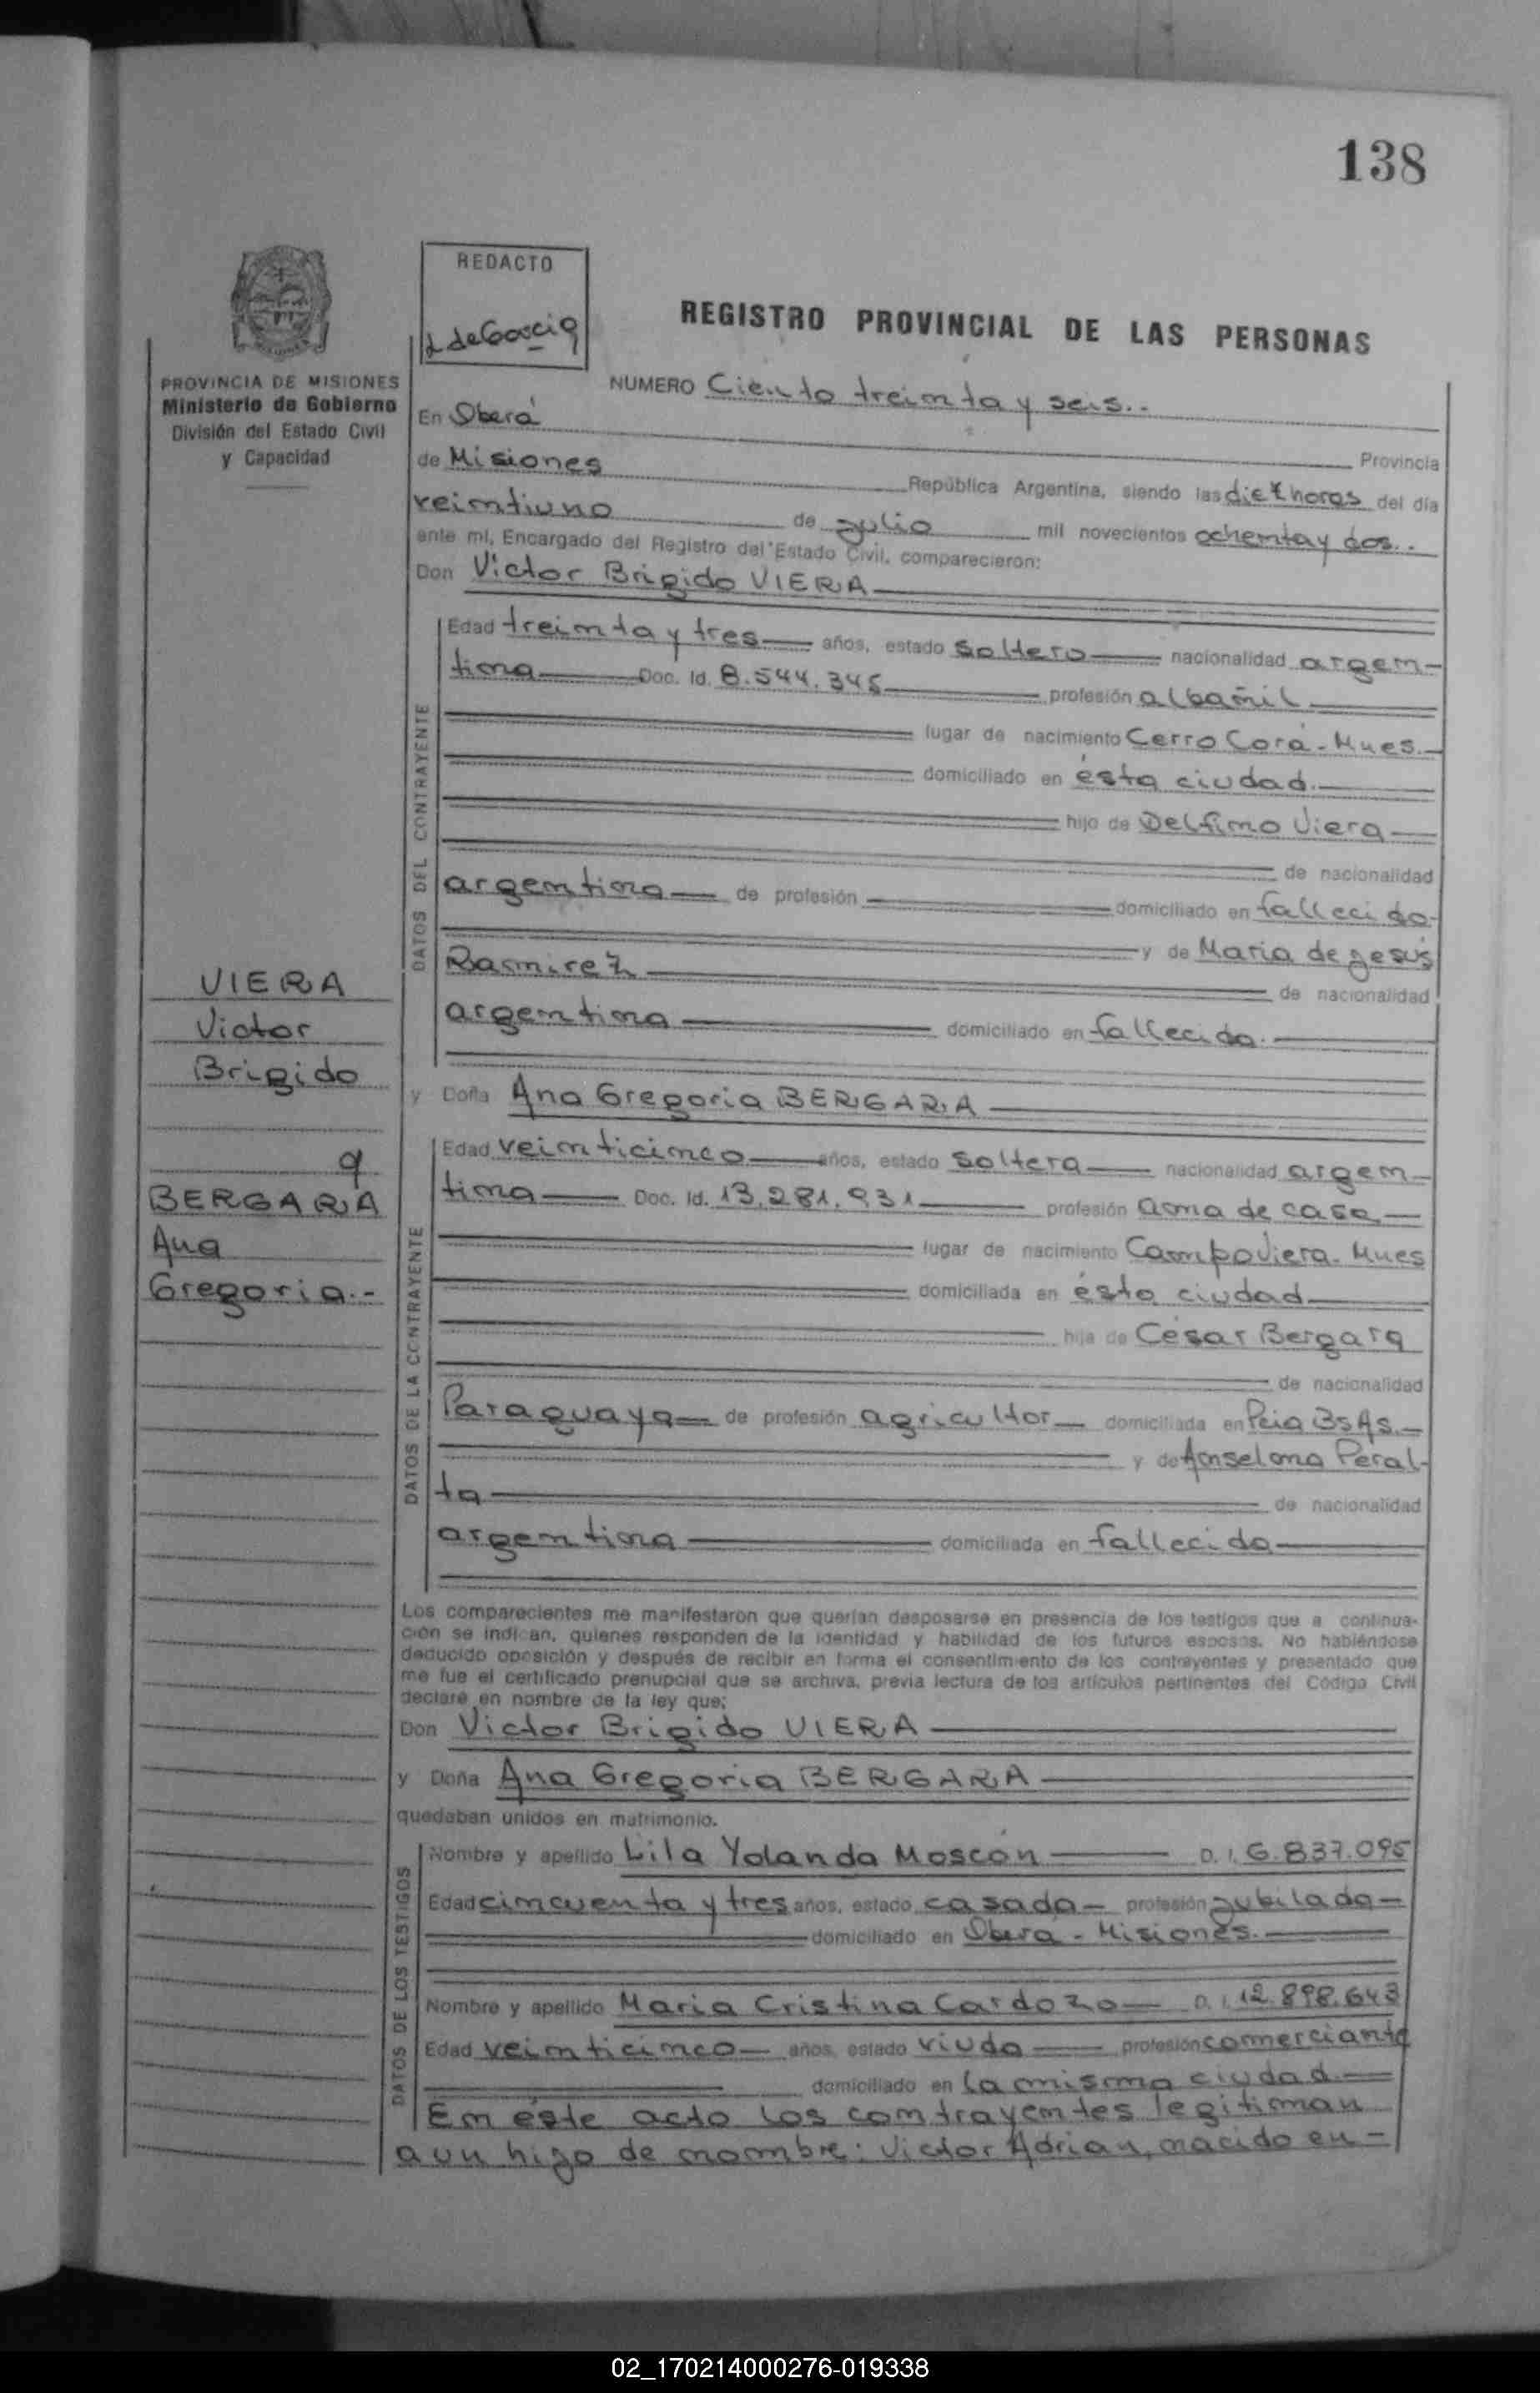 138
REDACTO
L de Garcia
REGISTRO PROVINCIAL DE LAS PERSONAS
PROVINCIA DE MISIONES
Ministerio de Gobierno
División del Estado Civil
y Capacidad
NUMERO Ciento treinta y seis..
En Oberá
Provincia
de Misiones República Argentina, siendo las diez horas del día
veintiuno de julio mil novecientos ochenta y dos..
ante mí, Encargado del Registro del Estado Civil, comparecieron:
Don Victor Brigido VIERA
DATOS DEL CONTRAYENTE
Edad treinta y tres años, estado soltero nacionalidad argen-
tina Doc. Id. 8.544.345 profesión albañil
lugar de nacimiento Cerro Corá - Mnes.
domiciliado en ésta ciudad.
hijo de Delfino Viera
de nacionalidad
argentina de profesión domiciliado en fallecido-
y de Maria de Jesús
Ramirez de nacionalidad
argentina domiciliado en fallecida.
VIERA
Victor
Brigido
y
BERGARA
Ana
Gregoria.-
y Doña Ana Gregoria BERGARA
DATOS DE LA CONTRAYENTE
Edad veinticinco años, estado soltera nacionalidad argen-
tina Doc. Id. 13.281.931 profesión ama de casa
lugar de nacimiento Campo Viera. Mnes
domiciliada en ésta ciudad
hija de César Bergara
de nacionalidad
Paraguaya de profesión agricultor domiciliada en Pcia Bs As.
y de Anselma Peral-
ta de nacionalidad
argentina domiciliada en fallecida
Los comparecientes me manifestaron que querían desposarse en presencia de los testigos que a continua-
ción se indican, quienes responden de la identidad y habilidad de los futuros esposos. No habiéndose
deducido oposición y después de recibir en forma el consentimiento de los contrayentes y presentado que
me fue el certificado prenupcial que se archiva, previa lectura de los artículos pertinentes del Código Civil
declaré en nombre de la ley que:
Don Victor Brigido VIERA
y Doña Ana Gregoria BERGARA
quedaban unidos en matrimonio.
DATOS DE LOS TESTIGOS
Nombre y apellido Lila Yolanda Moscón D.I. 6.837.095
Edad cincuenta y tres años, estado casada profesión jubilada
domiciliado en Oberá - Misiones.
Nombre y apellido Maria Cristina Cardozo D.I. 12.898.643
Edad veinticinco años, estado viuda profesión comerciante
domiciliado en la misma ciudad.
En éste acto los contrayentes legitiman
a un hijo de nombre: Victor Adrian, nacido en -
02_170214000276-019338